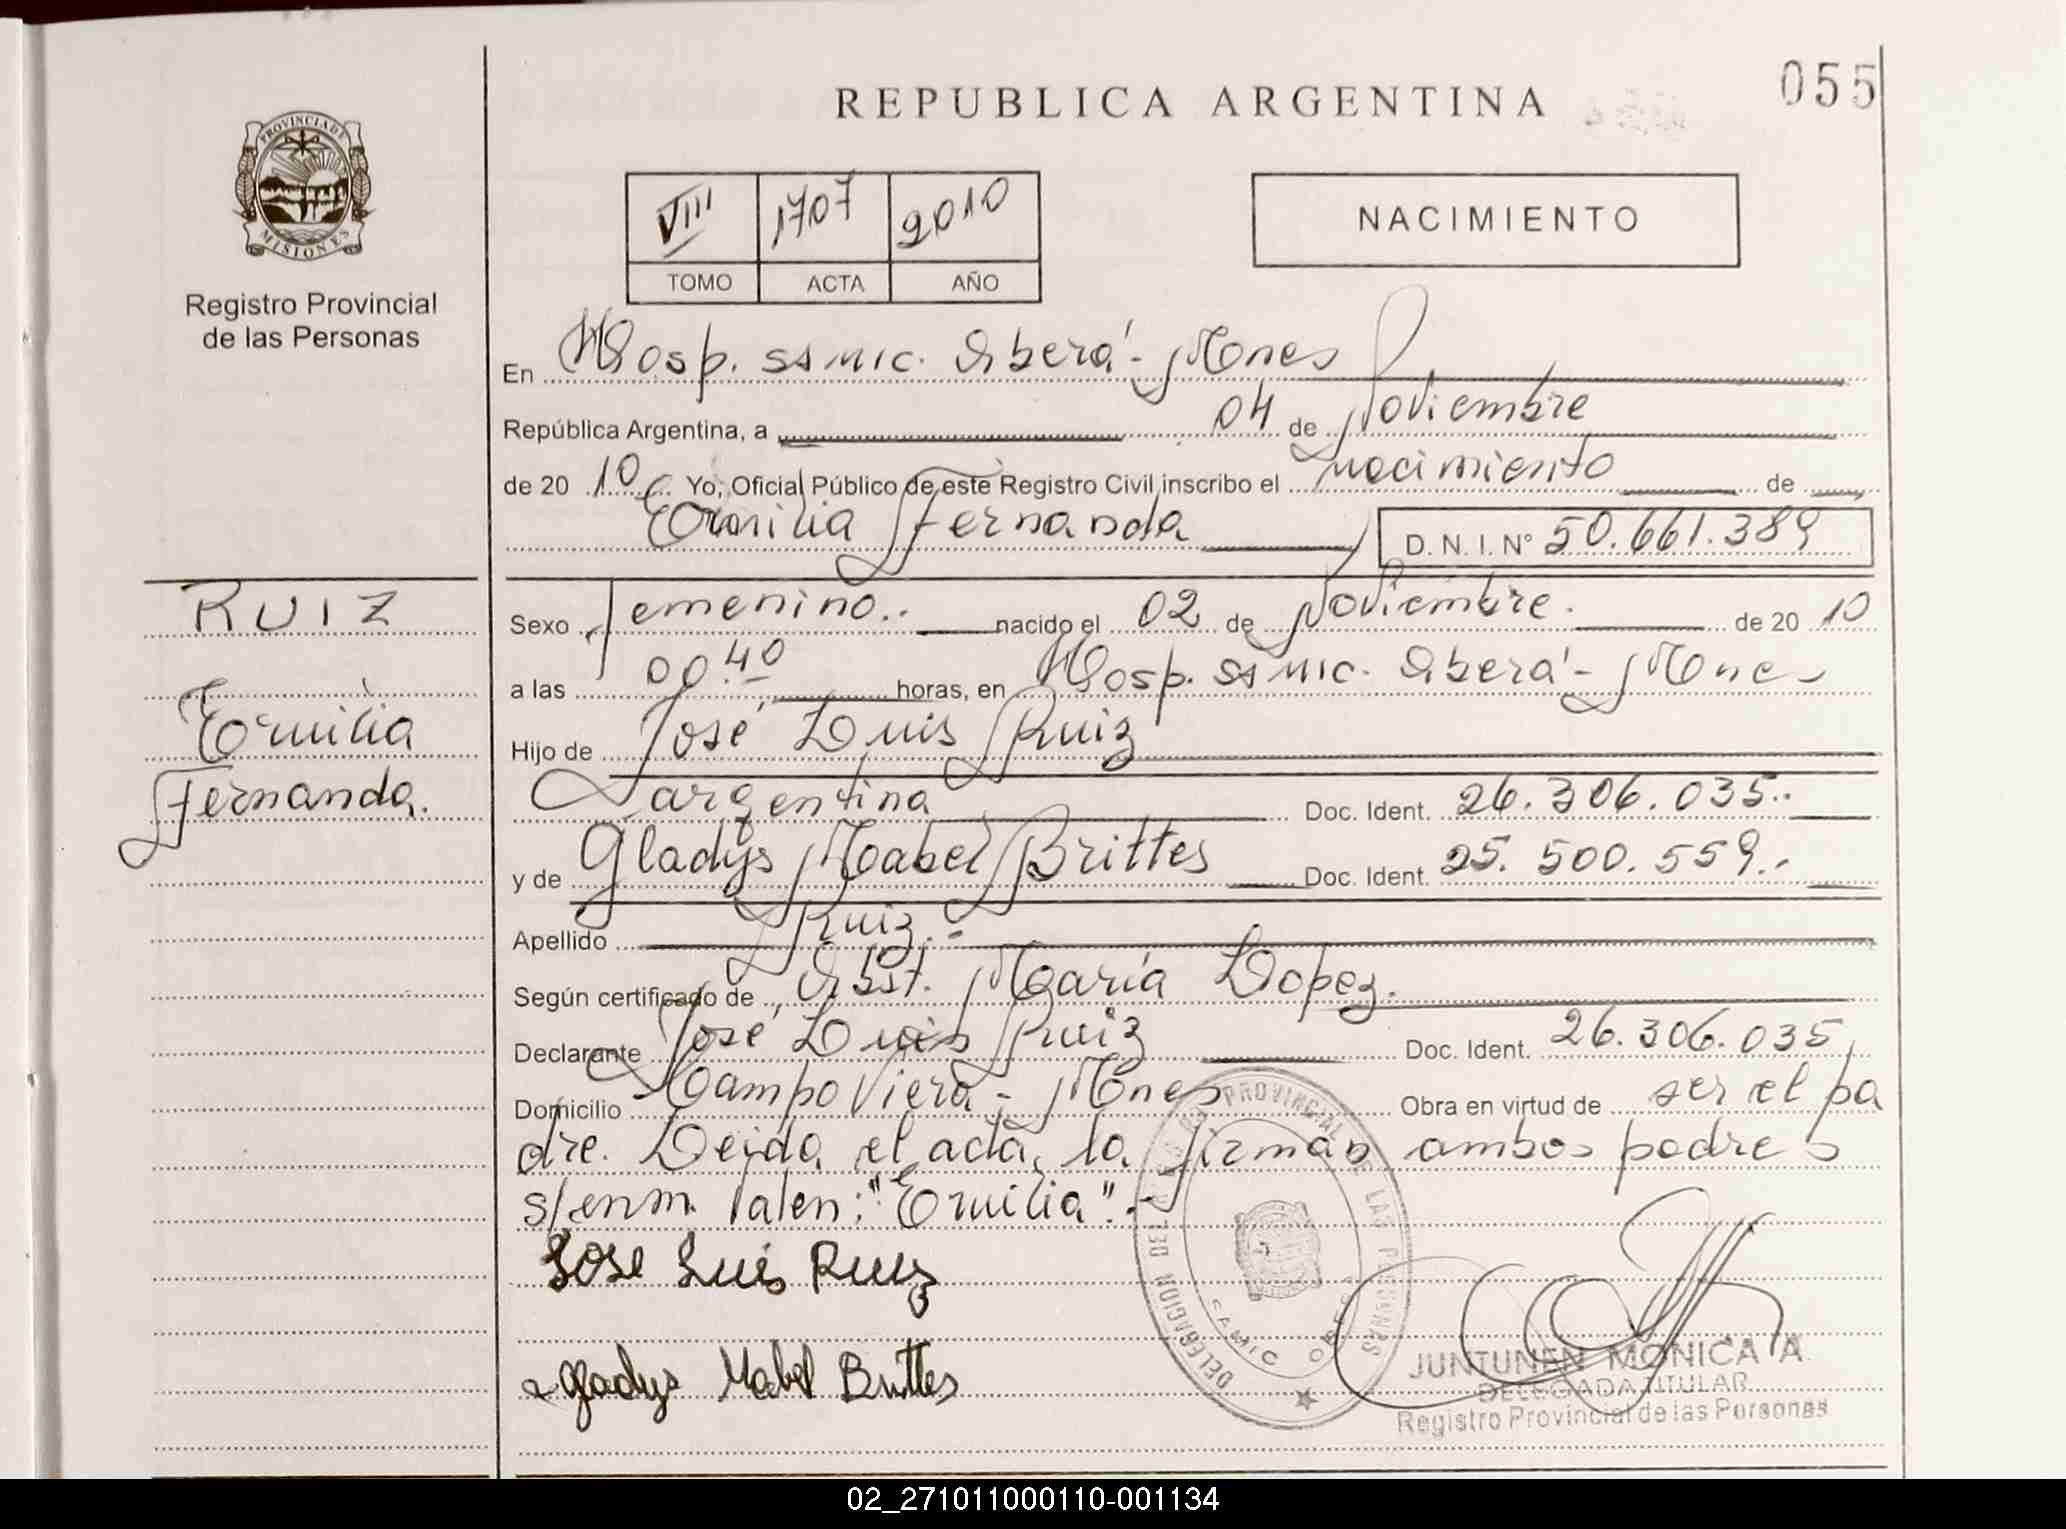 055
REPUBLICA ARGENTINA
PROVINCIA DE
MISIONES
Registro Provincial
de las Personas
VIII 1707 2010
TOMO ACTA AÑO
NACIMIENTO
En Hosp. SAMIC. Oberá - Mnes
República Argentina, a 04 de Noviembre
de 20 10 Yo, Oficial Público de este Registro Civil inscribo el nacimiento de
Emilia Fernanda D. N. I. N° 50.661.389
RUIZ
Emilia
Fernanda.
Sexo femenino.. nacido el 02 de Noviembre. de 20 10
a las 00.40 horas, en Hosp. SAMIC. Oberá - Mnes
Hijo de José Luis Ruiz
argentina Doc. Ident. 26.306.035..
y de Gladys Mabel Brittes Doc. Ident. 25.500.559.-
Apellido Ruiz.-
Según certificado de Obst. María Lopez.
Declarante José Luis Ruiz Doc. Ident. 26.306.035
Domicilio Campo Viera - Mnes Obra en virtud de ser el pa
dre. Leida el acta, la firman ambos padres
s/enm. Valen: "Emilia".-
Jose Luis Ruiz
Gladys Mabel Brittes
DELEGACION DEL REG. PROVINCIAL DE LAS PERSONAS
SAMIC OBERA
JUNTUNEN MONICA A.
DELEGADA TITULAR
Registro Provincial de las Personas
02_271011000110-001134